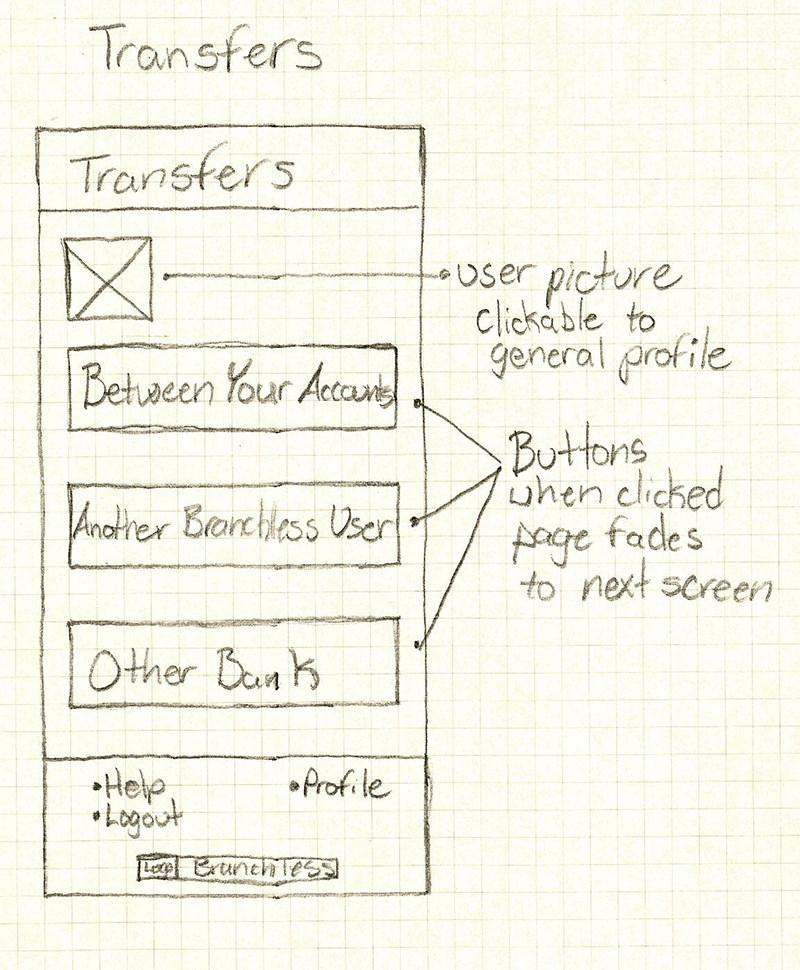 Transfers
Transfers
•user picture
clickable to
general profile
Between Your Accounts
Another Branchless User
Other Bank
Buttons
when clicked
page fades
to next screen
•Help
•Profile
•Logout
Logo Branchless